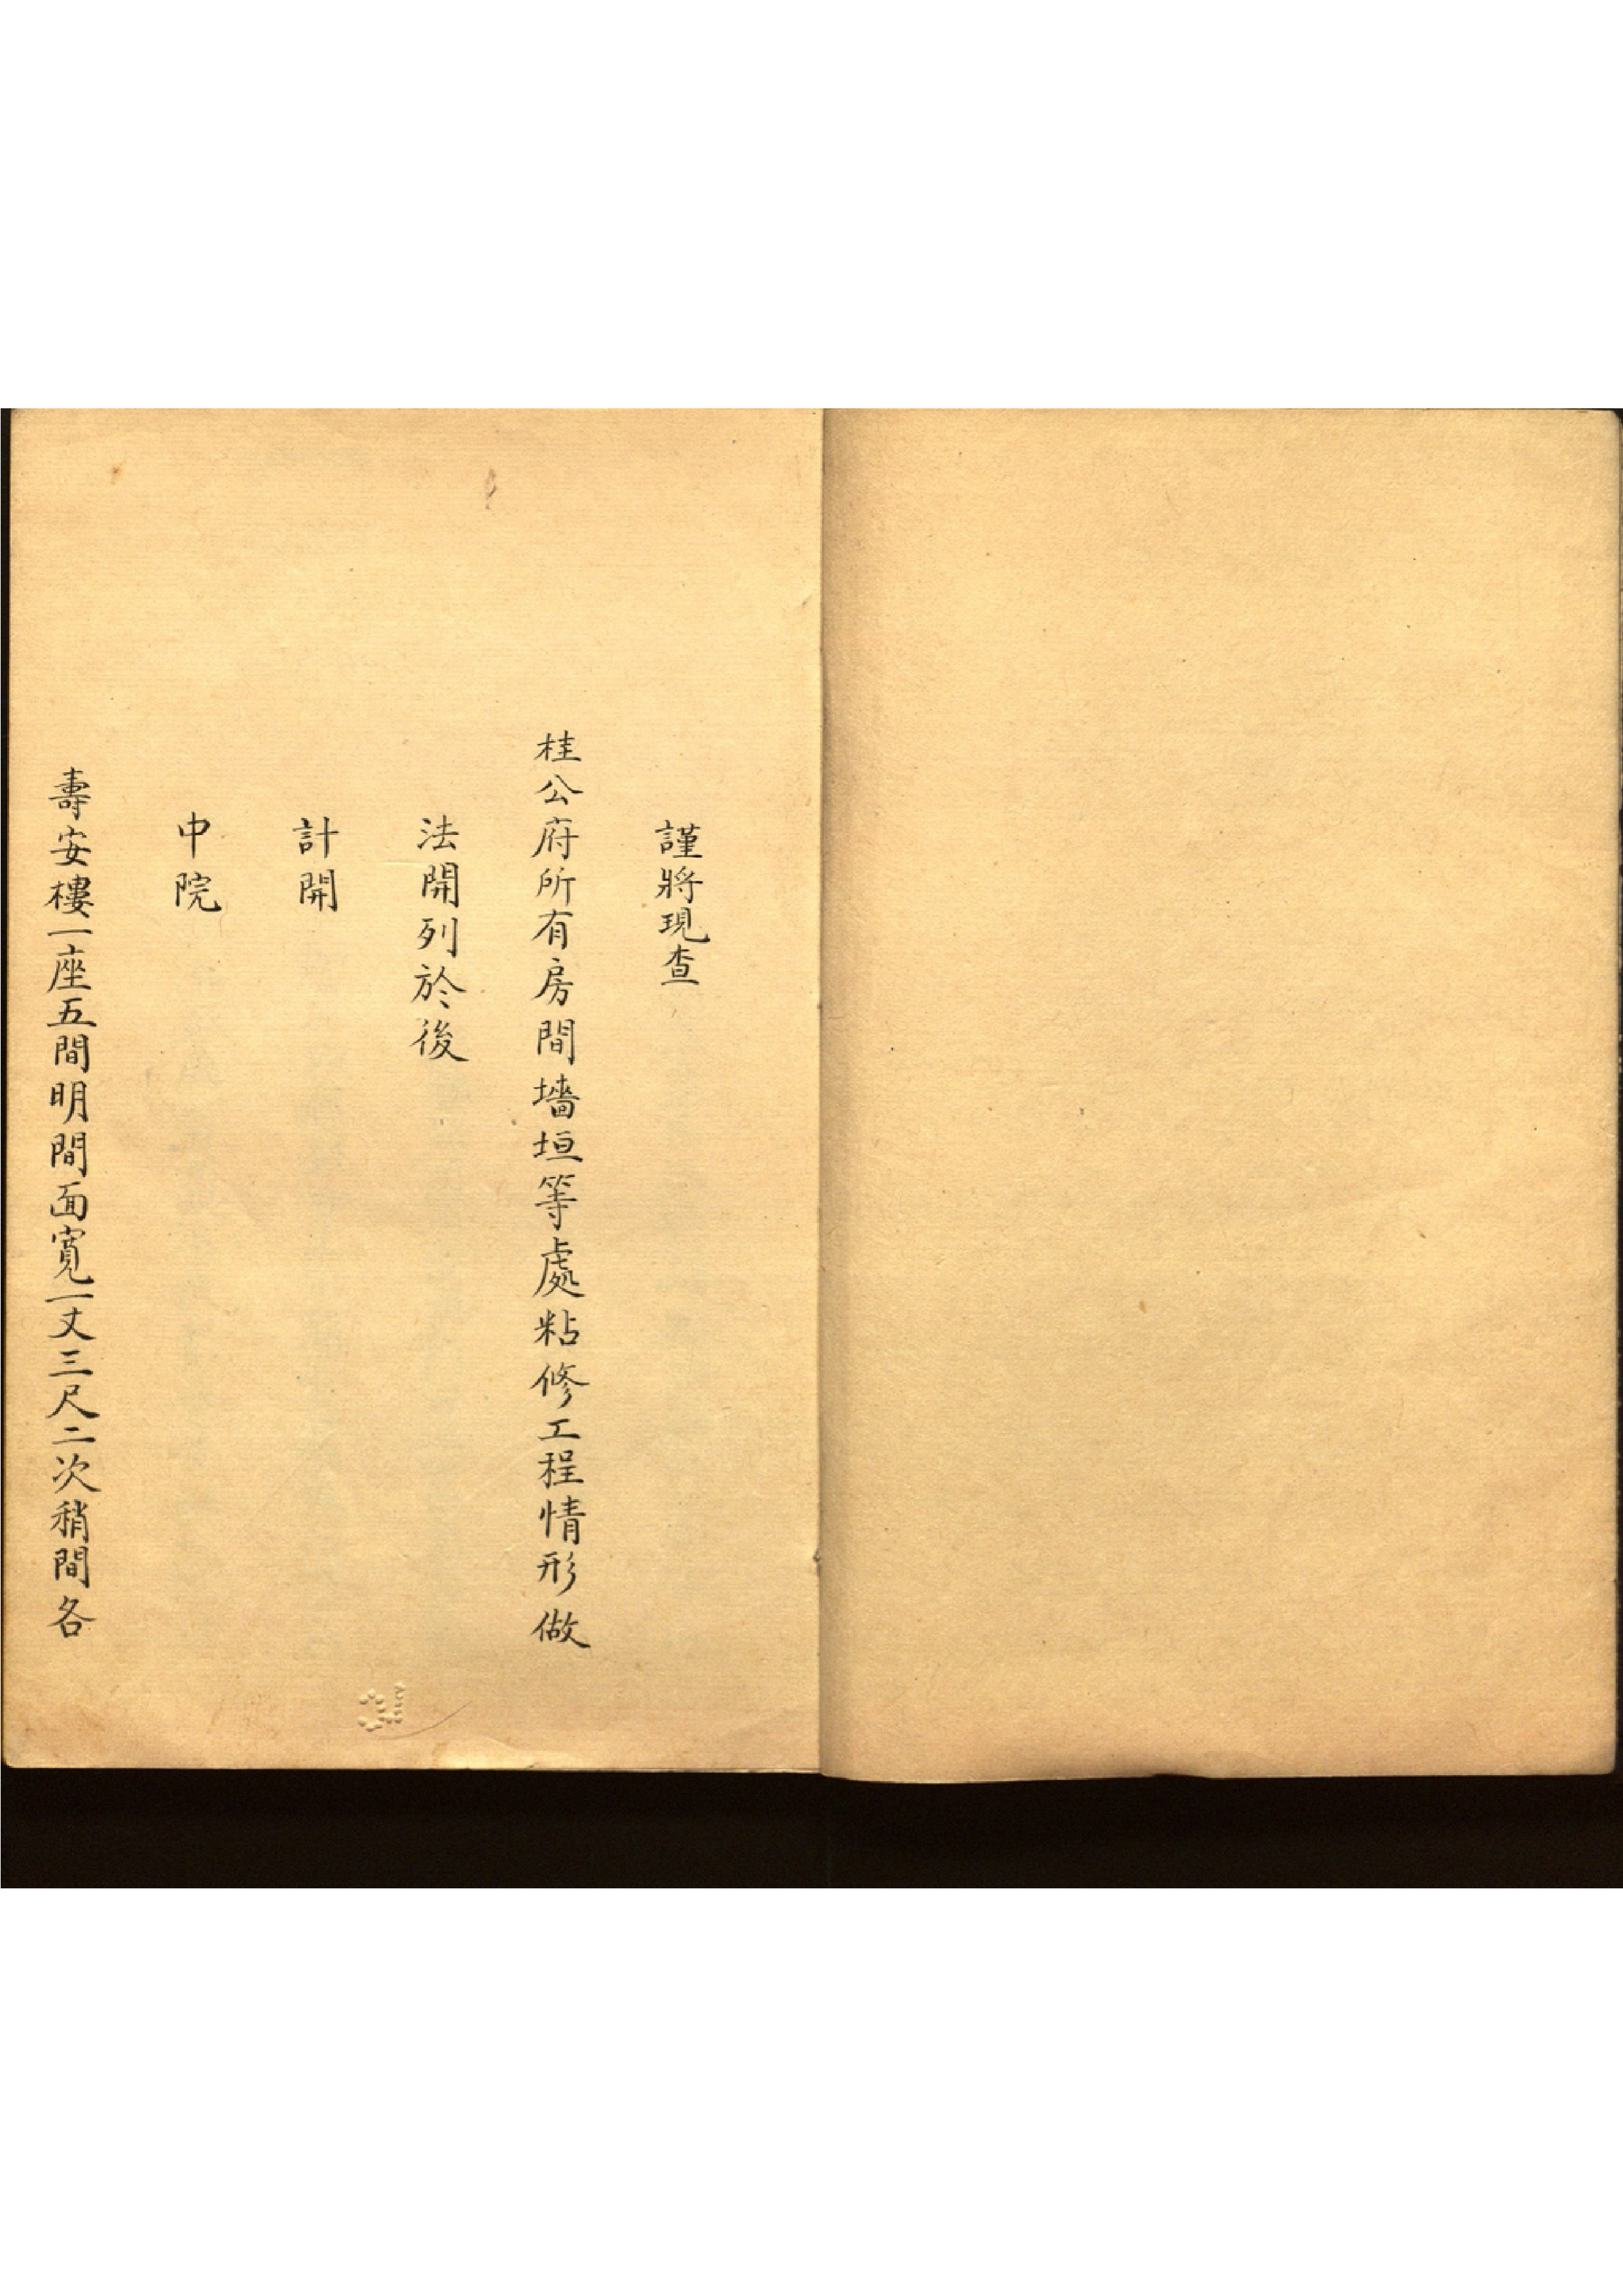 謹將現查
桂公府所有房間墻垣等處粘修工程情形做
法開列於後
計開
中院
壽安樓一座五間明間面寬一丈三尺二次稍間各